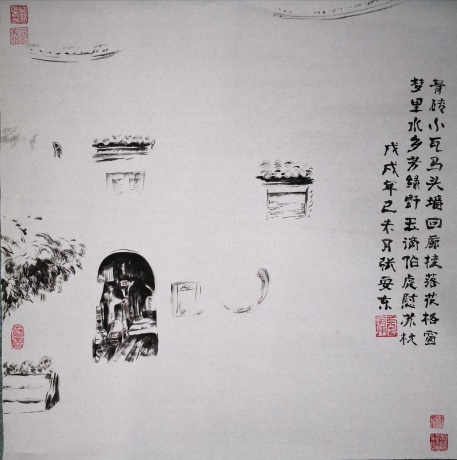 青砖小瓦马头墙回廊挂落花格窗
梦里水乡芳绿野玉谪伯虎慰苏杭
戊戌年己未月张安东